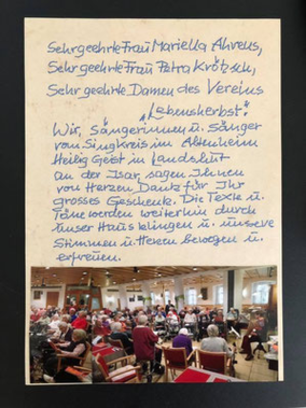 Sehr geehrte Frau Mariella Ahrens,
Sehr geehrte Frau Petra Krötzsch,
Sehr geehrte Damen des Vereins
„Lebensherbst".
Wir, Sängerinnen u. Sänger
vom Singkreis im Altenheim
Heilig Geist in Landshut
an der Isar, sagen Ihnen
von Herzen Dank für Ihr
grosses Geschenk. Die Texte u.
Töne werden weiterhin durch
unser Haus klingen u. unsere
Stimmen u. Herzen bewegen u.
erfreuen.